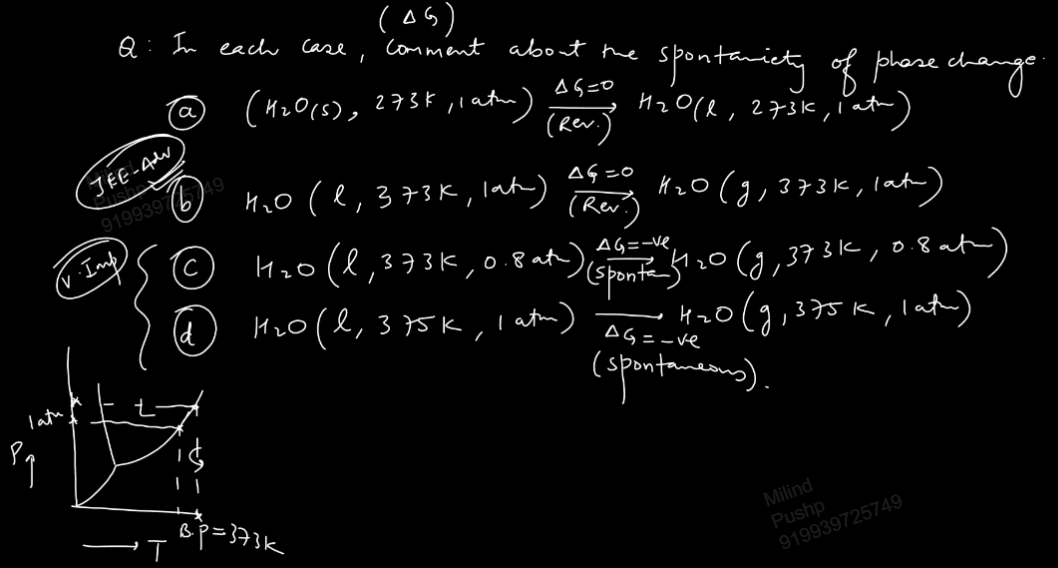 (ΔG)
Q: In each case, comment about the spontaniety of phase change.
(a) (H₂O(s), 273K, 1atm) ΔG=0 ⟶ (Rev.) H₂O(l, 273K, 1atm)
JEE-Adv
(b) H₂O(l, 373K, 1atm) ΔG=0 ⟶ (Rev.) H₂O(g, 373K, 1atm)
V.Imp
(c) H₂O(l, 373K, 0.8atm) ΔG=-ve ⟶ (spontan) H₂O(g, 373K, 0.8atm)
(d) H₂O(l, 375K, 1atm) ⟶ H₂O(g, 375K, 1atm)
ΔG=-ve
(spontaneous).
1atm
P↑
⟶ T
B.P=373K
Milind
Pushp
919939725749
Milind
Pushp
919939725749